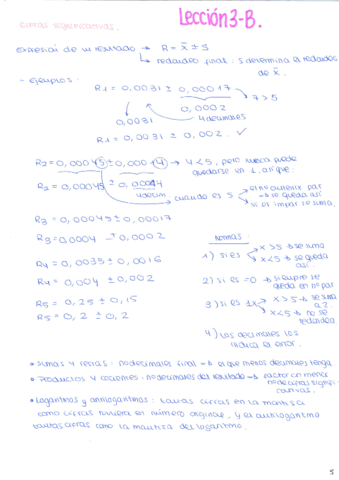 Lección 3-B.
cifras significativas.
expresión de un resultado → R = x̄ ± S
↳ redondeo final: S determina el redondeo de x̄.
- Ejemplos:
R1 = 0,0031 ± 0,00017
7 > 5
0,0002
0,0031 4 decimales
R1 = 0,0031 ± 0,002. ✓
R2 = 0,00045 ± 0,00014 → 4 < 5, pero nunca puede
quedarse en 1. así que
R2 = 0,00045 ± 0,00014
cuando es 5
si es impar se suma.
R3 = 0,00045 ± 0,00017
R3 = 0,0004 ± 0,0002
R4 = 0,0035 ± 0,0016
R4 = 0,004 ± 0,002
R5 = 0,25 ± 0,15
R5 = 0,2 ± 0,2
Normas:
1) si es x > 5 → se suma
x < 5 → se queda así
2) si es = 0 → siempre se
queda en nº par
3) si es 1x x > 5 → se suma a 2.
x < 5 → no se redondea
4) Los decimales los
indica el error.
• Sumas y restas: nº decimales final → el que menos decimales tenga
• Productos y cocientes: nº decimales del resultado → factor con menor
nº de cifras significativas.
• Logaritmos y antilogaritmos: tantas cifras en la mantisa
como cifras tuviera en número original, y el antilogaritmo
tantas cifras como la mantisa del logaritmo.
5